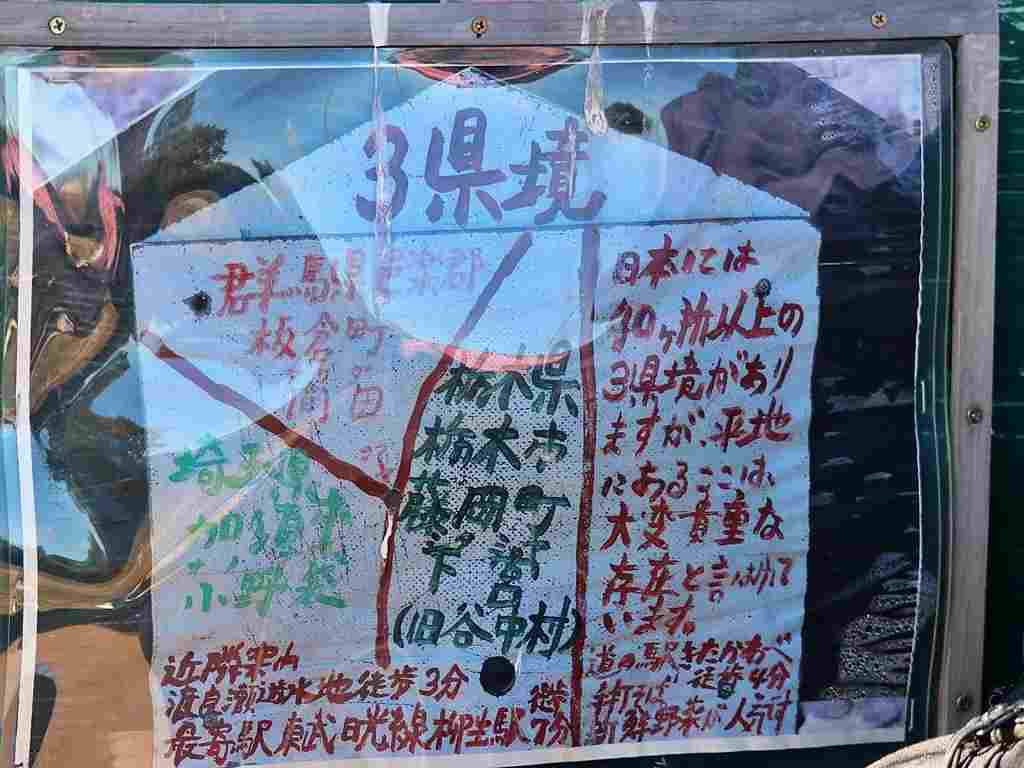 3県境
群馬県邑楽郡
板倉町
海老瀬
埼玉県
加須市
小野袋
栃木県
栃木市
藤岡町
下宮
(旧谷中村)
日本には
40ヶ所以上の
3県境があり
ますが、平地
にあるここは、
大変貴重な
存在と言はれて
います。
近隣案内
渡良瀬遊水地 徒歩3分
最寄駅 東武日光線 柳生駅 徒歩7分
道の駅きたかわべ
徒歩4分
手打そば
新鮮野菜が人気です